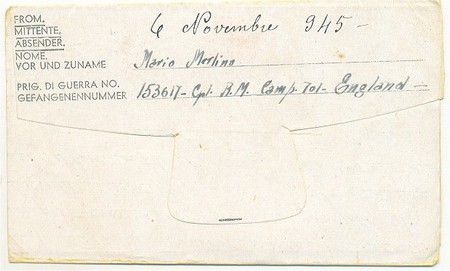 FROM. 6 Novembre 945-
MITTENTE.
ABSENDER.
NOME. Mario Merlino
VOR UND ZUNAME
PRIG. DI GUERRA NO. 153617- Cpl. A.M. Camp. 701- England-
GEFANGENENNUMMER